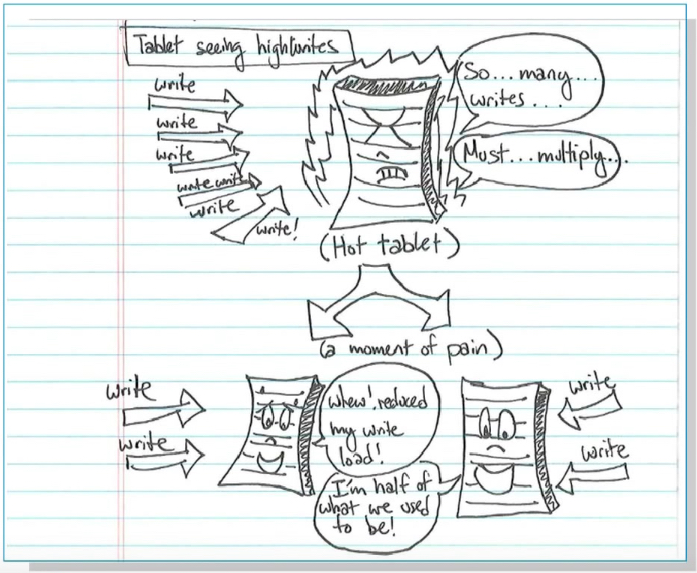 Tablet seeing high writes
write
write
write
write write
write
write!
So... many...
writes...
Must... multiply...
(Hot tablet)
(a moment of pain)
write
write
whew! reduced
my write
load!
I'm half of
what we used
to be!
write
write